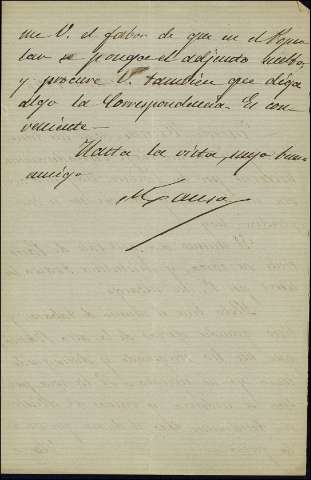 me V. el fabor de que en el Popu
lar se ponga el adjunto suelto
y procure V. tambien que diga
algo la Correspondencia. Es con
veniente—
Hasta la vista, suyo buen
amigo